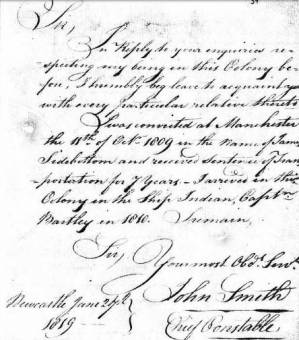 Sir,
In Reply to your enquiries re-
specting my being in this Colony be-
fore, I humbly beg leave to acquaint you
with every particular relative thereto
I was convicted at Manchester
the 11th of Octr 1809 in the Name of James
Sidebottom and received Sentence of Tran
portation for 7 Years. I arrived in this
Colony in the Ship Indian, Captn
Bartley in 1810. I remain,
Sir, Your most Obdt Servt
John Smith
Chief Constable
Newcastle June
1819